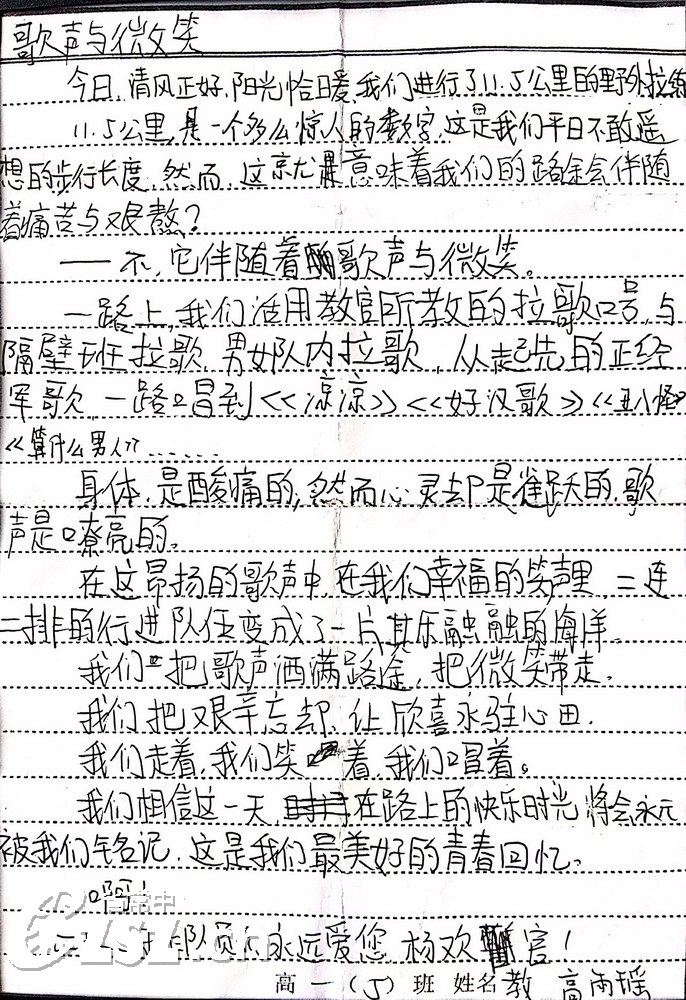 歌声与微笑
今日,清风正好,阳光恰暖,我们进行了11.5公里的野外拉练
11.5公里,是一个多么惊人的数字,这是我们平日不敢遥
想的步行长度,然而,这就是意味着我们的路途会伴随
着痛苦与艰熬?
——不,它伴随着歌声与微笑。
一路上,我们活用教官所教的拉歌口号,与
隔壁班拉歌,男女队内拉歌,从起先的正经
军歌,一路唱到<<凉凉>><<好汉歌>><<丑小怪>>
<<算什么男人>>......
身体,是酸痛的,然而心灵却是雀跃的,歌
声是嘹亮的。
在这昂扬的歌声中,在我们幸福的笑声里,二连
二排的行进队伍变成了一片其乐融融的海洋。
我们把歌声洒满路途,把微笑带走。
我们把艰辛忘却,让欣喜永驻心田.
我们走着,我们笑着,我们唱着。
我们相信这一天,在路上的快乐时光,将会永元
被我们铭记,这是我们最美好的青春回忆。
啊!
二 队员 永远爱您 杨欢 官!
高一(5)班 姓名 教 高雨瑶